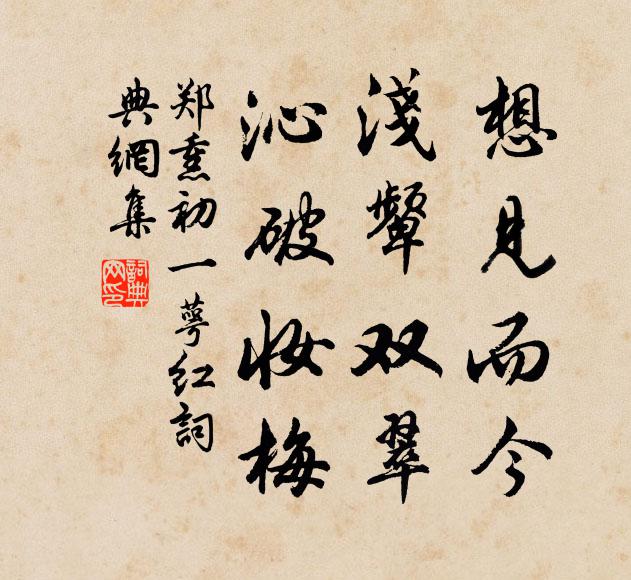 想見而今
淺顰双翠
沁破妝梅
郑熏初一萼红詞
典網集
詞典網印